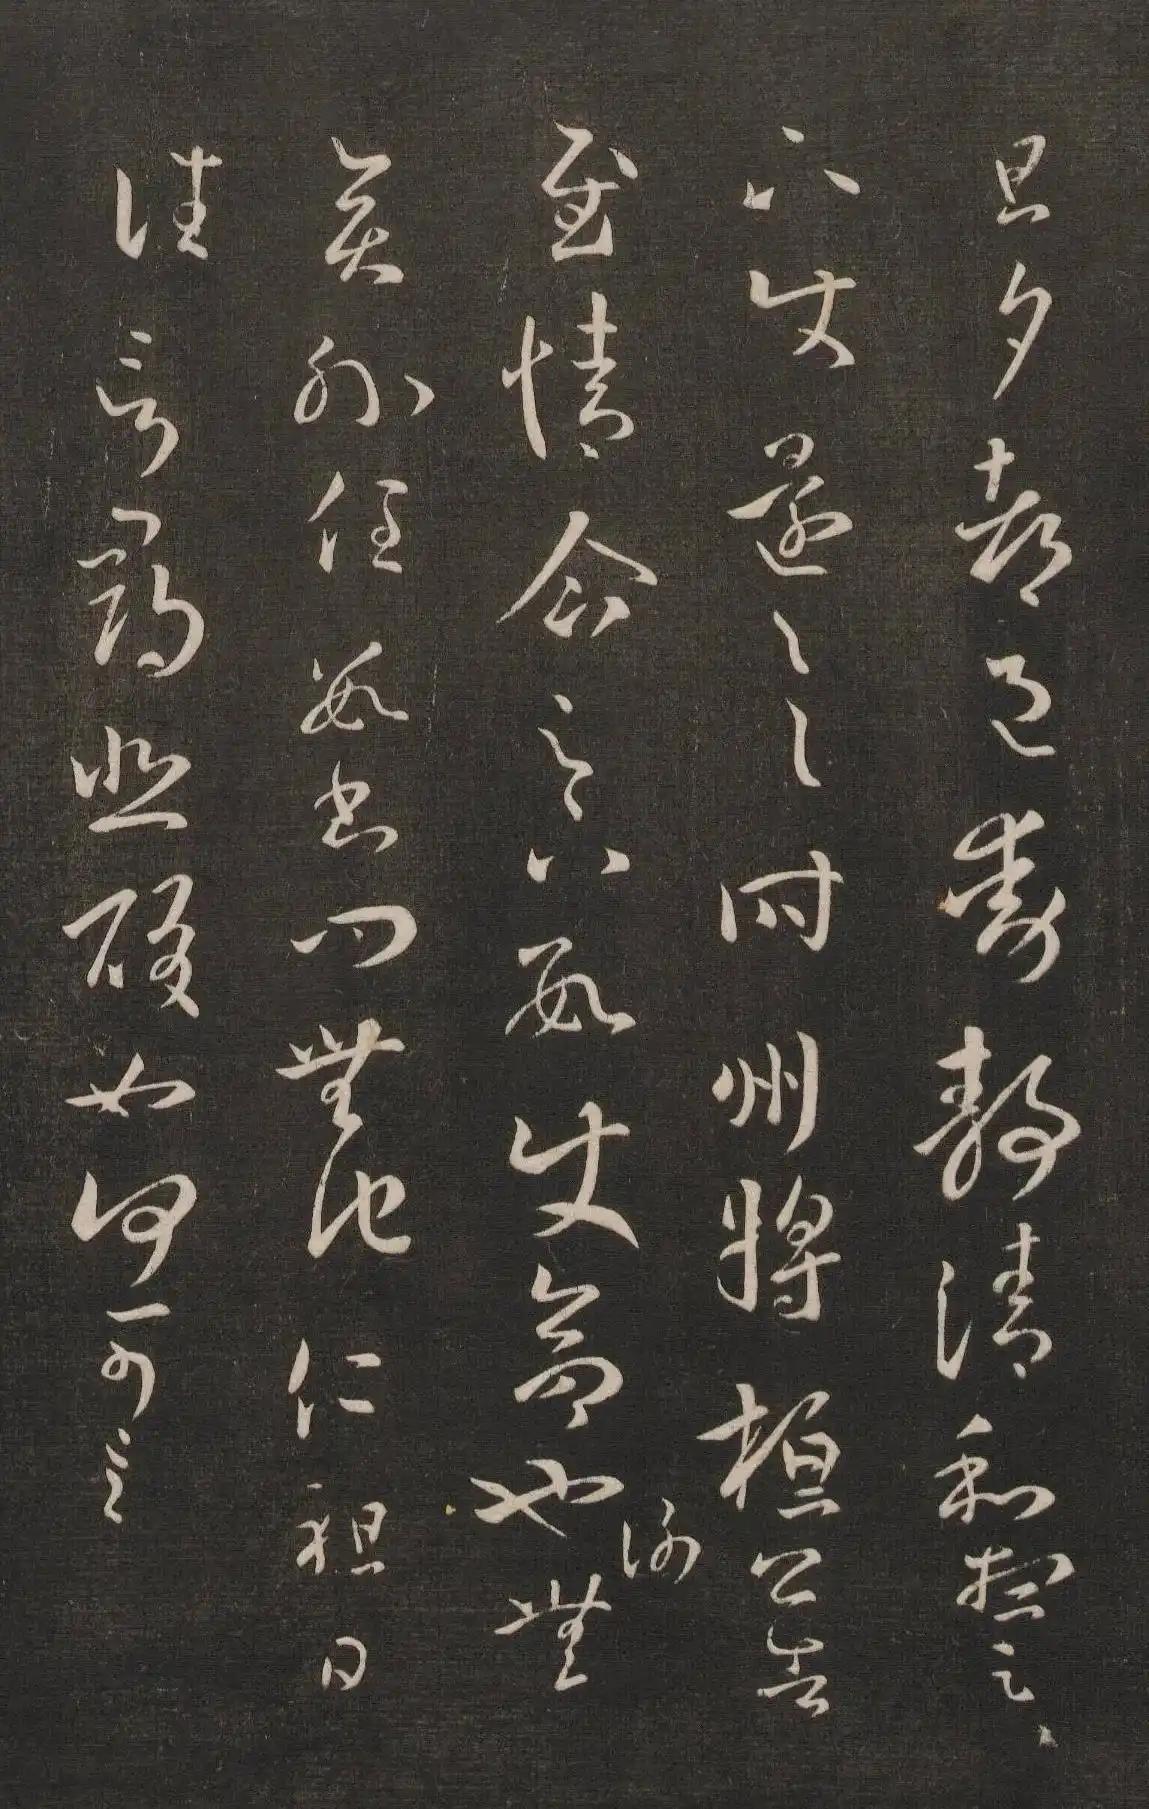 旦夕都邑動靜清和想足
下使還一一時州將桓公告
慰情企足下數使命也謝無
奕外任數書問無他仁祖日
往言尋悲酸如何可言